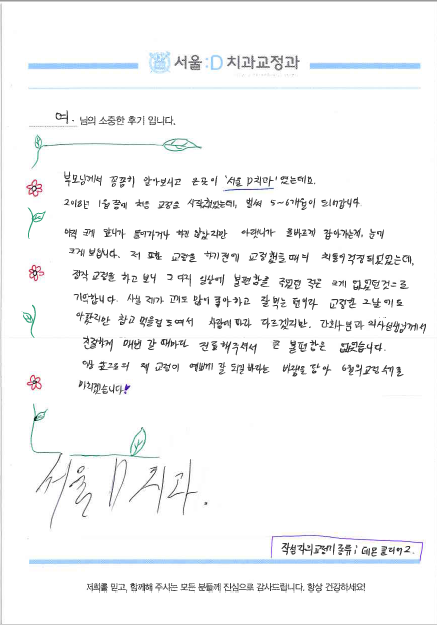 서울:D 치과교정과
여. 님의 소중한 후기 입니다.
부모님께서 꼼꼼히 알아보시고 온곳이 '서울 D치과' 였는데요.
2018년 1월 쯤에 처음 교정을 시작했었는데, 벌써 5~6개월이 되어갑니다.
아직 크게 효과가 들어가거나 하진 않았지만 아랫니가 올바르게 잡아가는게, 눈에
크게 보입니다. 저 또한 교정을 하기전에 교정했을때의 치통이 걱정되었었는데,
정작 교정을 하고 보니 그 다지 일상에 불편함을 주었던 적은 크게 없었던것으로
기억합니다. 사실 제가 고기도 많이 좋아하고 잘 먹는 편이라 교정한 그날 이도
아팠지만 참고 먹을정도여서 사람에 따라 다르겠지만, 간호사님과 의사선생님께서
친절하게 매번 갈 때마다 진료해주셔서 큰 불편함은 없었습니다.
앞으로의 제 교정이 예쁘게 잘 되길 바라는 바램을 담아 6월의 교정 후기를
마치겠습니다!
서울 D 치과.
작성자의교정기 종류 : 데몬 클리어2.
저희를 믿고, 함께해 주시는 모든 분들께 진심으로 감사드립니다. 항상 건강하세요!